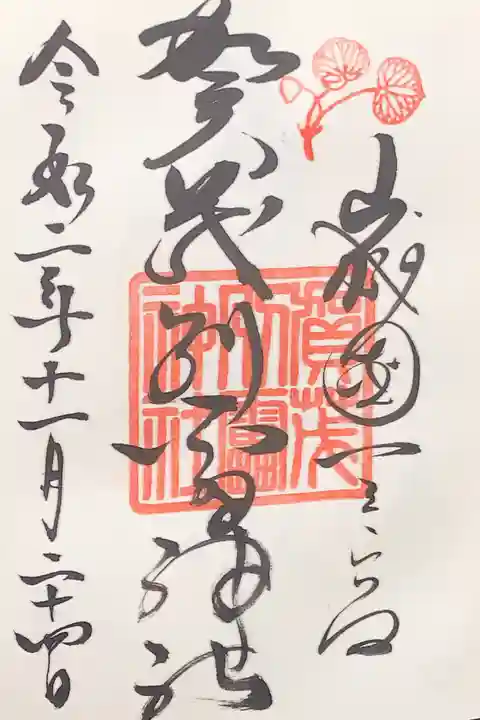 山城國一之宮
賀茂別雷神社
令和二年十一月二十四日
賀茂
別雷
神社